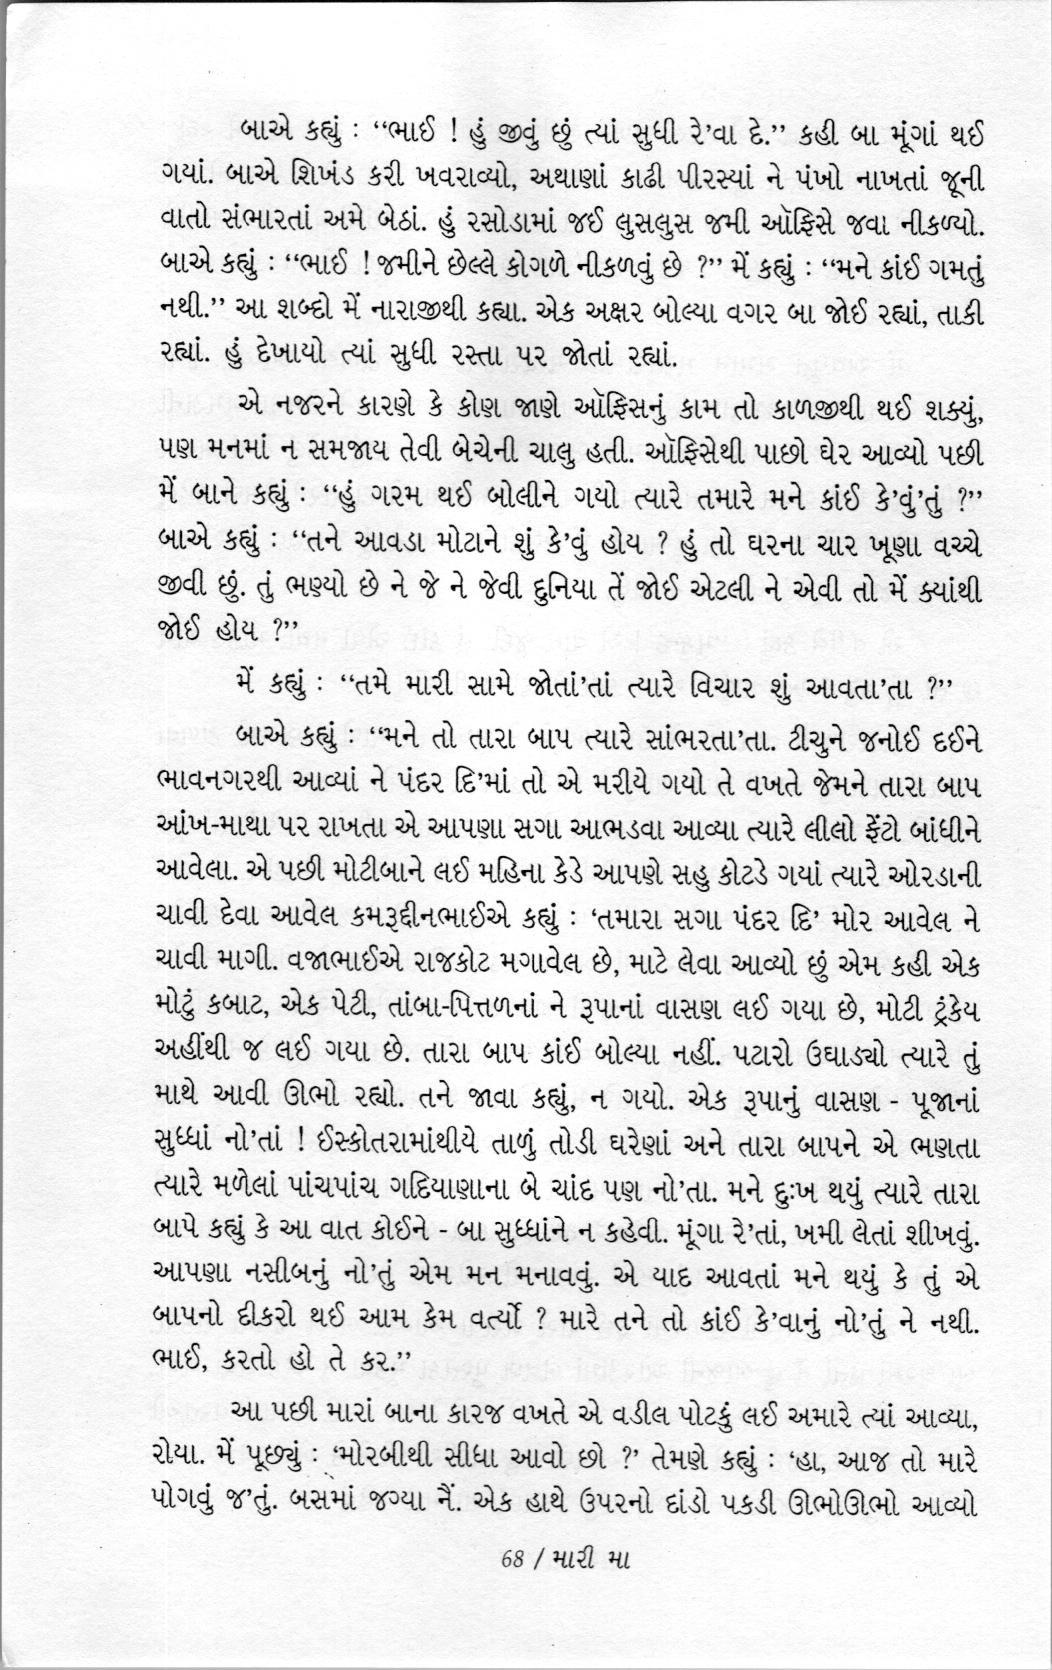 બાએ કહ્યું : “ભાઈ ! હું જીવું છું ત્યાં સુધી રે’વા દે.” કહી બા મૂંગાં થઈ
ગયાં. બાએ શિખંડ કરી ખવરાવ્યો, અથાણાં કાઢી પીરસ્યાં ને પંખો નાખતાં જૂની
વાતો સંભારતાં અમે બેઠાં. હું રસોડામાં જઈ લુસલુસ જમી ઑફિસે જવા નીકળ્યો.
બાએ કહ્યું : “ભાઈ ! જમીને છેલ્લે કોગળે નીકળવું છે ?” મેં કહ્યું : “મને કાંઈ ગમતું
નથી.” આ શબ્દો મેં નારાજીથી કહ્યા. એક અક્ષર બોલ્યા વગર બા જોઈ રહ્યાં, તાકી
રહ્યાં. હું દેખાયો ત્યાં સુધી રસ્તા પર જોતાં રહ્યાં.
એ નજરને કારણે કે કોણ જાણે ઑફિસનું કામ તો કાળજીથી થઈ શક્યું,
પણ મનમાં ન સમજાય તેવી બેચેની ચાલુ હતી. ઑફિસેથી પાછો ઘેર આવ્યો પછી
મેં બાને કહ્યું : “હું ગરમ થઈ બોલીને ગયો ત્યારે તમારે મને કાંઈ કે’વું’તું ?”
બાએ કહ્યું : “તને આવડા મોટાને શું કે’વું હોય ? હું તો ઘરના ચાર ખૂણા વચ્ચે
જીવી છું. તું ભણ્યો છે ને જે ને જેવી દુનિયા તેં જોઈ એટલી ને એવી તો મેં ક્યાંથી
જોઈ હોય ?”
મેં કહ્યું : “તમે મારી સામે જોતાં’તાં ત્યારે વિચાર શું આવતા’તા ?”
બાએ કહ્યું : “મને તો તારા બાપ ત્યારે સાંભરતા’તા. ટીચુને જનોઈ દઈને
ભાવનગરથી આવ્યાં ને પંદર દિ’માં તો એ મરીયે ગયો તે વખતે જેમને તારા બાપ
આંખ-માથા પર રાખતા એ આપણા સગા આભડવા આવ્યા ત્યારે લીલો ફેંટો બાંધીને
આવેલા. એ પછી મોટીબાને લઈ મહિના કેડે આપણે સહુ કોટડે ગયાં ત્યારે ઓરડાની
ચાવી દેવા આવેલ કમરૂદ્દીનભાઈએ કહ્યું : ‘તમારા સગા પંદર દિ’ મોર આવેલ ને
ચાવી માગી. વજાભાઈએ રાજકોટ મગાવેલ છે, માટે લેવા આવ્યો છું એમ કહી એક
મોટું કબાટ, એક પેટી, તાંબા-પિત્તળનાં ને રૂપાનાં વાસણ લઈ ગયા છે, મોટી ટ્રંકેય
અહીંથી જ લઈ ગયા છે. તારા બાપ કાંઈ બોલ્યા નહીં. પટારો ઉઘાડ્યો ત્યારે તું
માથે આવી ઊભો રહ્યો. તને જાવા કહ્યું, ન ગયો. એક રૂપાનું વાસણ - પૂજાનાં
સુધ્ધાં નો’તાં ! ઈસ્કોતરામાંથીયે તાળું તોડી ઘરેણાં અને તારા બાપને એ ભણતા
ત્યારે મળેલાં પાંચપાંચ ગદિયાણાના બે ચાંદ પણ નો’તા. મને દુઃખ થયું ત્યારે તારા
બાપે કહ્યું કે આ વાત કોઈને - બા સુધ્ધાંને ન કહેવી. મૂંગા રે’તાં, ખમી લેતાં શીખવું.
આપણા નસીબનું નો’તું એમ મન મનાવવું. એ યાદ આવતાં મને થયું કે તું એ
બાપનો દીકરો થઈ આમ કેમ વર્ત્યો ? મારે તને તો કાંઈ કે’વાનું નો’તું ને નથી.
ભાઈ, કરતો હો તે કર.”
આ પછી મારાં બાના કારજ વખતે એ વડીલ પોટકું લઈ અમારે ત્યાં આવ્યા,
રોયા. મેં પૂછ્યું : ‘મોરબીથી સીધા આવો છો ?’ તેમણે કહ્યું : ‘હા, આજ તો મારે
પોગવું જ’તું. બસમાં જગ્યા નૈં. એક હાથે ઉપરનો દાંડો પકડી ઊભોઊભો આવ્યો
68 / મારી મા